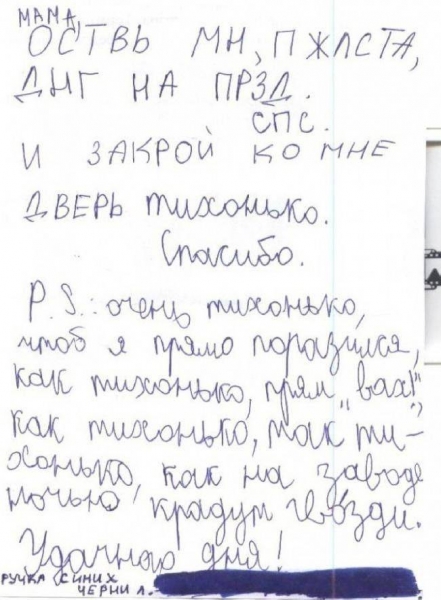 МАМА,
ОСТВЬ МН, ПЖЛСТА,
ДНГ НА ПРЗД.
СПС.
И ЗАКРОЙ КО МНЕ
ДВЕРЬ тихонько.
Спасибо.
P.S.: очень тихонько,
чтоб я прямо поразился,
как тихонько, прям „вах!",
как тихонько, так ти-
хонько, как на заводе
ночью крадут гвозди.
Удачного дня!
РУЧКА СИНИХ
ЧЕРНИЛ.